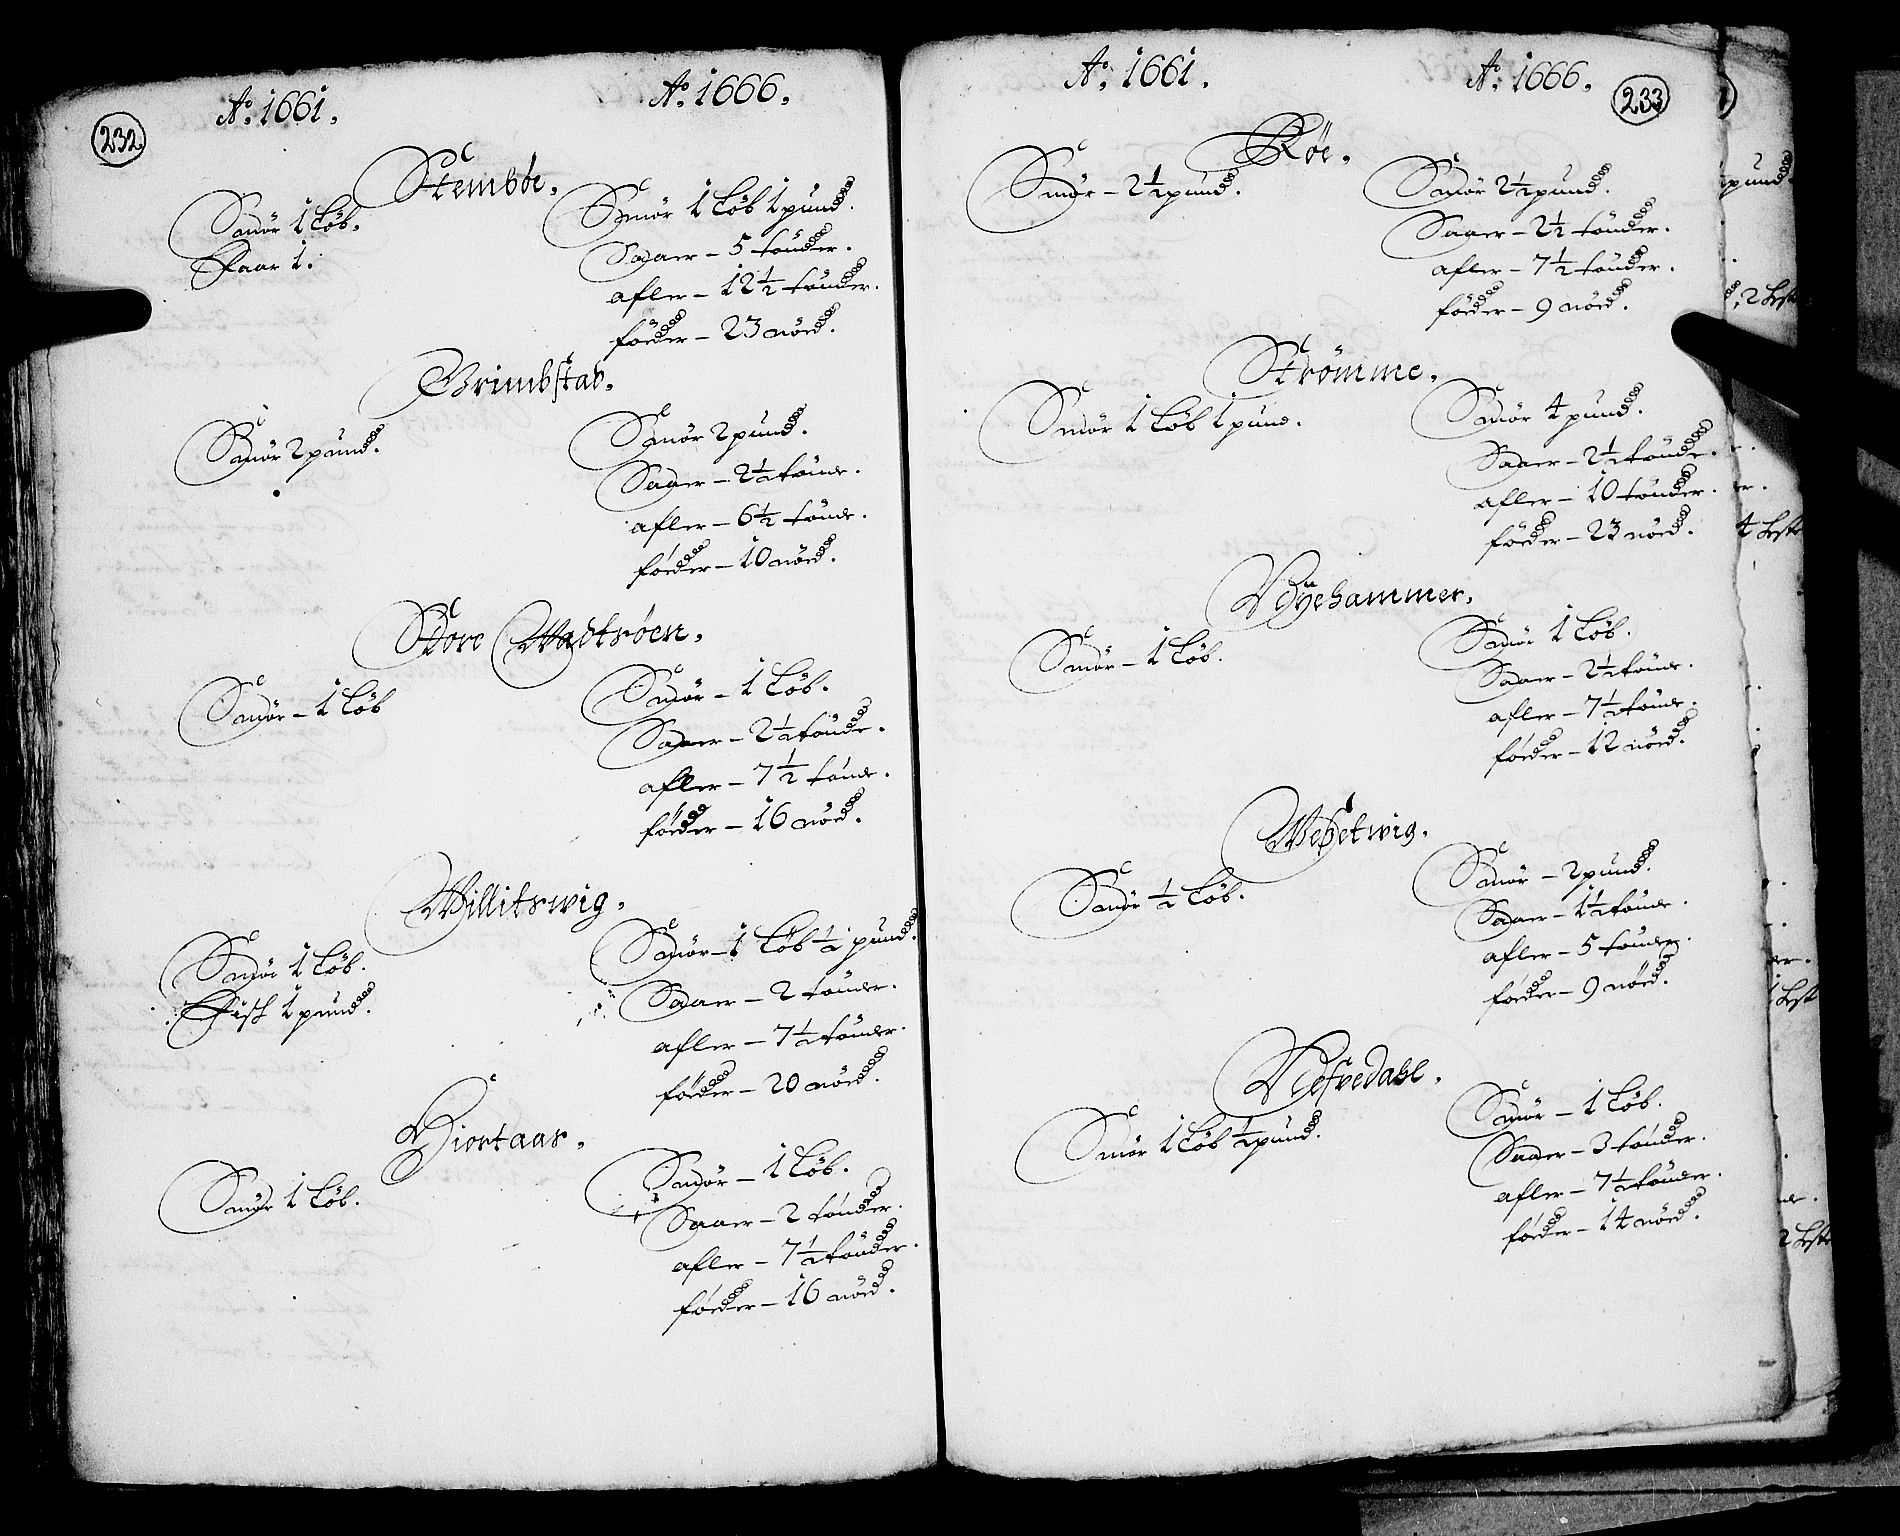 232
Ao. 1661.
Ao. 1666.
Stemböe.
Smör 1 Löb.
Faar 1.
Smör 1 Löb 1 pund.
Saaer - 5 tönder.
afler - 12½ tönder.
föder - 23 nöed.
Grimbstad.
Smör 2 pund.
Smör 2 pund.
Saaer - 2½ tönde.
afler - 6½ tönde.
föder - 10 nöed.
Store Wadtröen.
Smör - 1 Löb
Smör - 1 Löb.
Saaer - 2½ tönde.
afler - 7½ tönde.
föder - 16 nöed.
Willitswig.
Smör 1 Löb.
Fisk 1 pund.
Smör - 1 Löb ½ pund.
Saaer - 2 tönder.
afler - 7½ tönder.
föder - 20 nöed.
Hiortaas.
Smör 1 Löb.
Smör - 1 Löb.
Saaer - 2 tönder.
afler - 7½ tönder.
föder - 16 nöed.
233
Ao. 1661.
Ao. 1666.
Röe.
Smör - 2½ pund.
Smör 2½ pund.
Saaer - 2½ tönder.
afler - 7½ tönder.
föder - 9 nöed.
Strömme.
Smör 1 Löb 1 pund.
Smör 4 pund.
Saaer - 2½ tönde.
afler - 10 tönder.
föder - 23 nöed.
Nÿehammer.
Smör - 1 Löb.
Smör 1 Löb.
Saaer - 2½ tönde.
afler - 7½ tönde.
föder - 12 nöed.
Smör ½ Löb.
Smör - 2 pund.
Saaer - 1½ tönde.
afler - 5 tönder.
föder - 9 nöed.
Smör 1 Löb ½ pund.
Smör - 1 Löb.
Saaer - 3 tönder.
afler - 7½ tönder.
föder - 14 nöed.